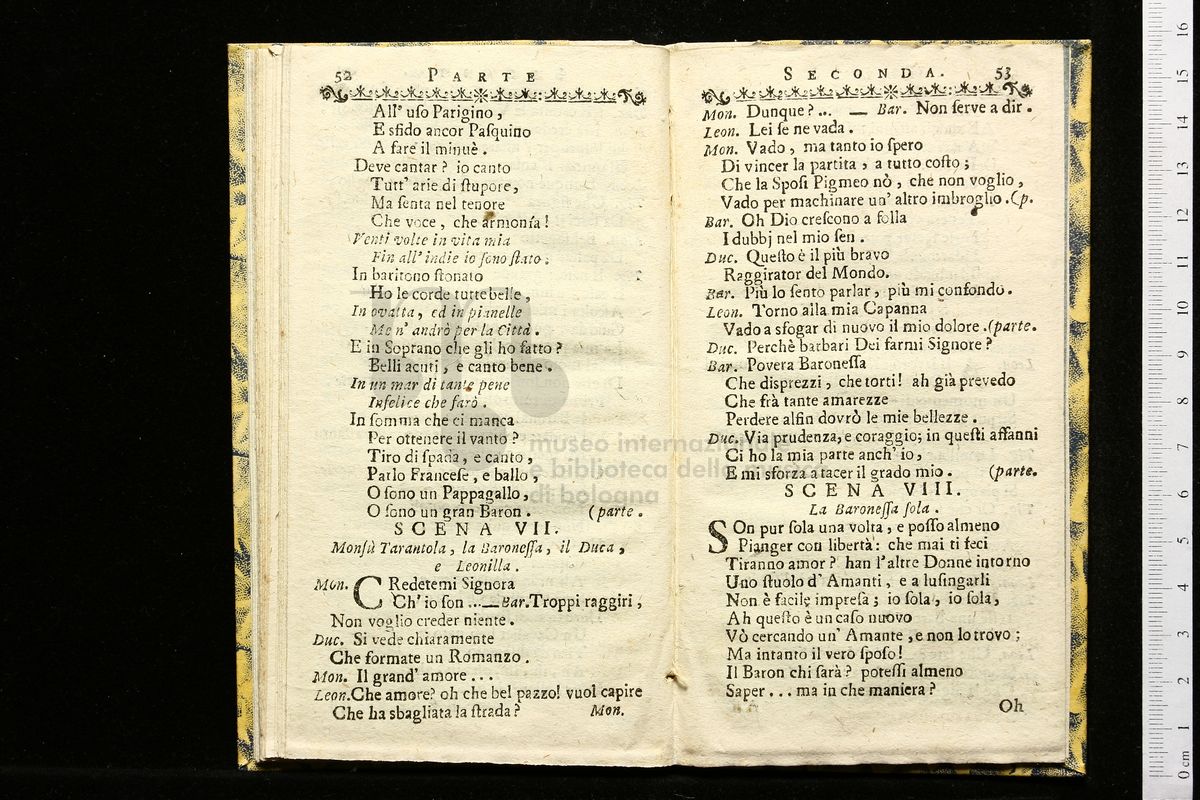 52 PARTE
All' uso Parigino,
E sfido ancor Pasquino
A fare il minuè.
Deve cantar? io canto
Tutt' arie di stupore,
Ma senta nel tenore
Che voce, che armonía!
Venti volte in vita mia
Fin all' indie io sono stato:
In baritono stonato
Ho le corde tutte belle,
In ovatta, ed in pianelle
Me n' andrò per la Città.
E in Soprano che gli ho fatto?
Belli acuti, e canto bene.
In un mar di tante pene
Infelice che farò.
In somma che ci manca
Per ottenere il vanto?
Tiro di spada, e canto,
Parlo Francese, e ballo,
O sono un Pappagallo,
O sono un gran Baron. (parte.
SCENA VII.
Monsù Tarantola, la Baronessa, il Duca,
e Leonilla.
Mon. CRedetemi Signora
Ch' io son ...— Bar. Troppi raggiri,
Non voglio creder niente.
Duc. Si vede chiaramente
Che formate un Romanzo.
Mon. Il grand' amore ...
Leon. Che amore? oh che bel pazzo! vuol capire
Che ha sbagliata la strada? Mon.
SECONDA. 53
Mon. Dunque? ... — Bar. Non serve a dir.
Leon. Lei se ne vada.
Mon. Vado, ma tanto io spero
Di vincer la partita, a tutto costo;
Che la Sposi Pigmeo nò, che non voglio,
Vado per machinare un' altro imbroglio. (p.
Bar. Oh Dio crescono a folla
I dubbj nel mio sen.
Duc. Questo è il più bravo
Raggirator del Mondo.
Bar. Più lo sento parlar, più mi confondo.
Leon. Torno alla mia Capanna
Vado a sfogar di nuovo il mio dolore. (parte.
Duc. Perchè barbari Dei farmi Signore?
Bar. Povera Baronessa
Che disprezzi, che torti! ah già prevedo
Che frà tante amarezze
Perdere alfin dovrò le mie bellezze.
Duc. Via prudenza, e coraggio; in questi affanni
Ci ho la mia parte anch' io,
E mi sforza a tacer il grado mio. (parte.
SCENA VIII.
La Baronessa sola.
SOn pur sola una volta, e posso almeno
Pianger con libertà: che mai ti feci
Tiranno amor? han l'altre Donne intorno
Uno stuolo d' Amanti, e a lusingarli
Non è facile impresa; io sola, io sola,
Ah questo è un caso nuovo
Vò cercando un' Amante, e non lo trovo;
Ma intanto il vero sposo!
Il Baron chi sarà? potessi almeno
Saper ... ma in che maniera?
Oh
museo internazionale
e biblioteca della musica
di bologna
0 cm 1 2 3 4 5 6 7 8 9 10 11 12 13 14 15 16